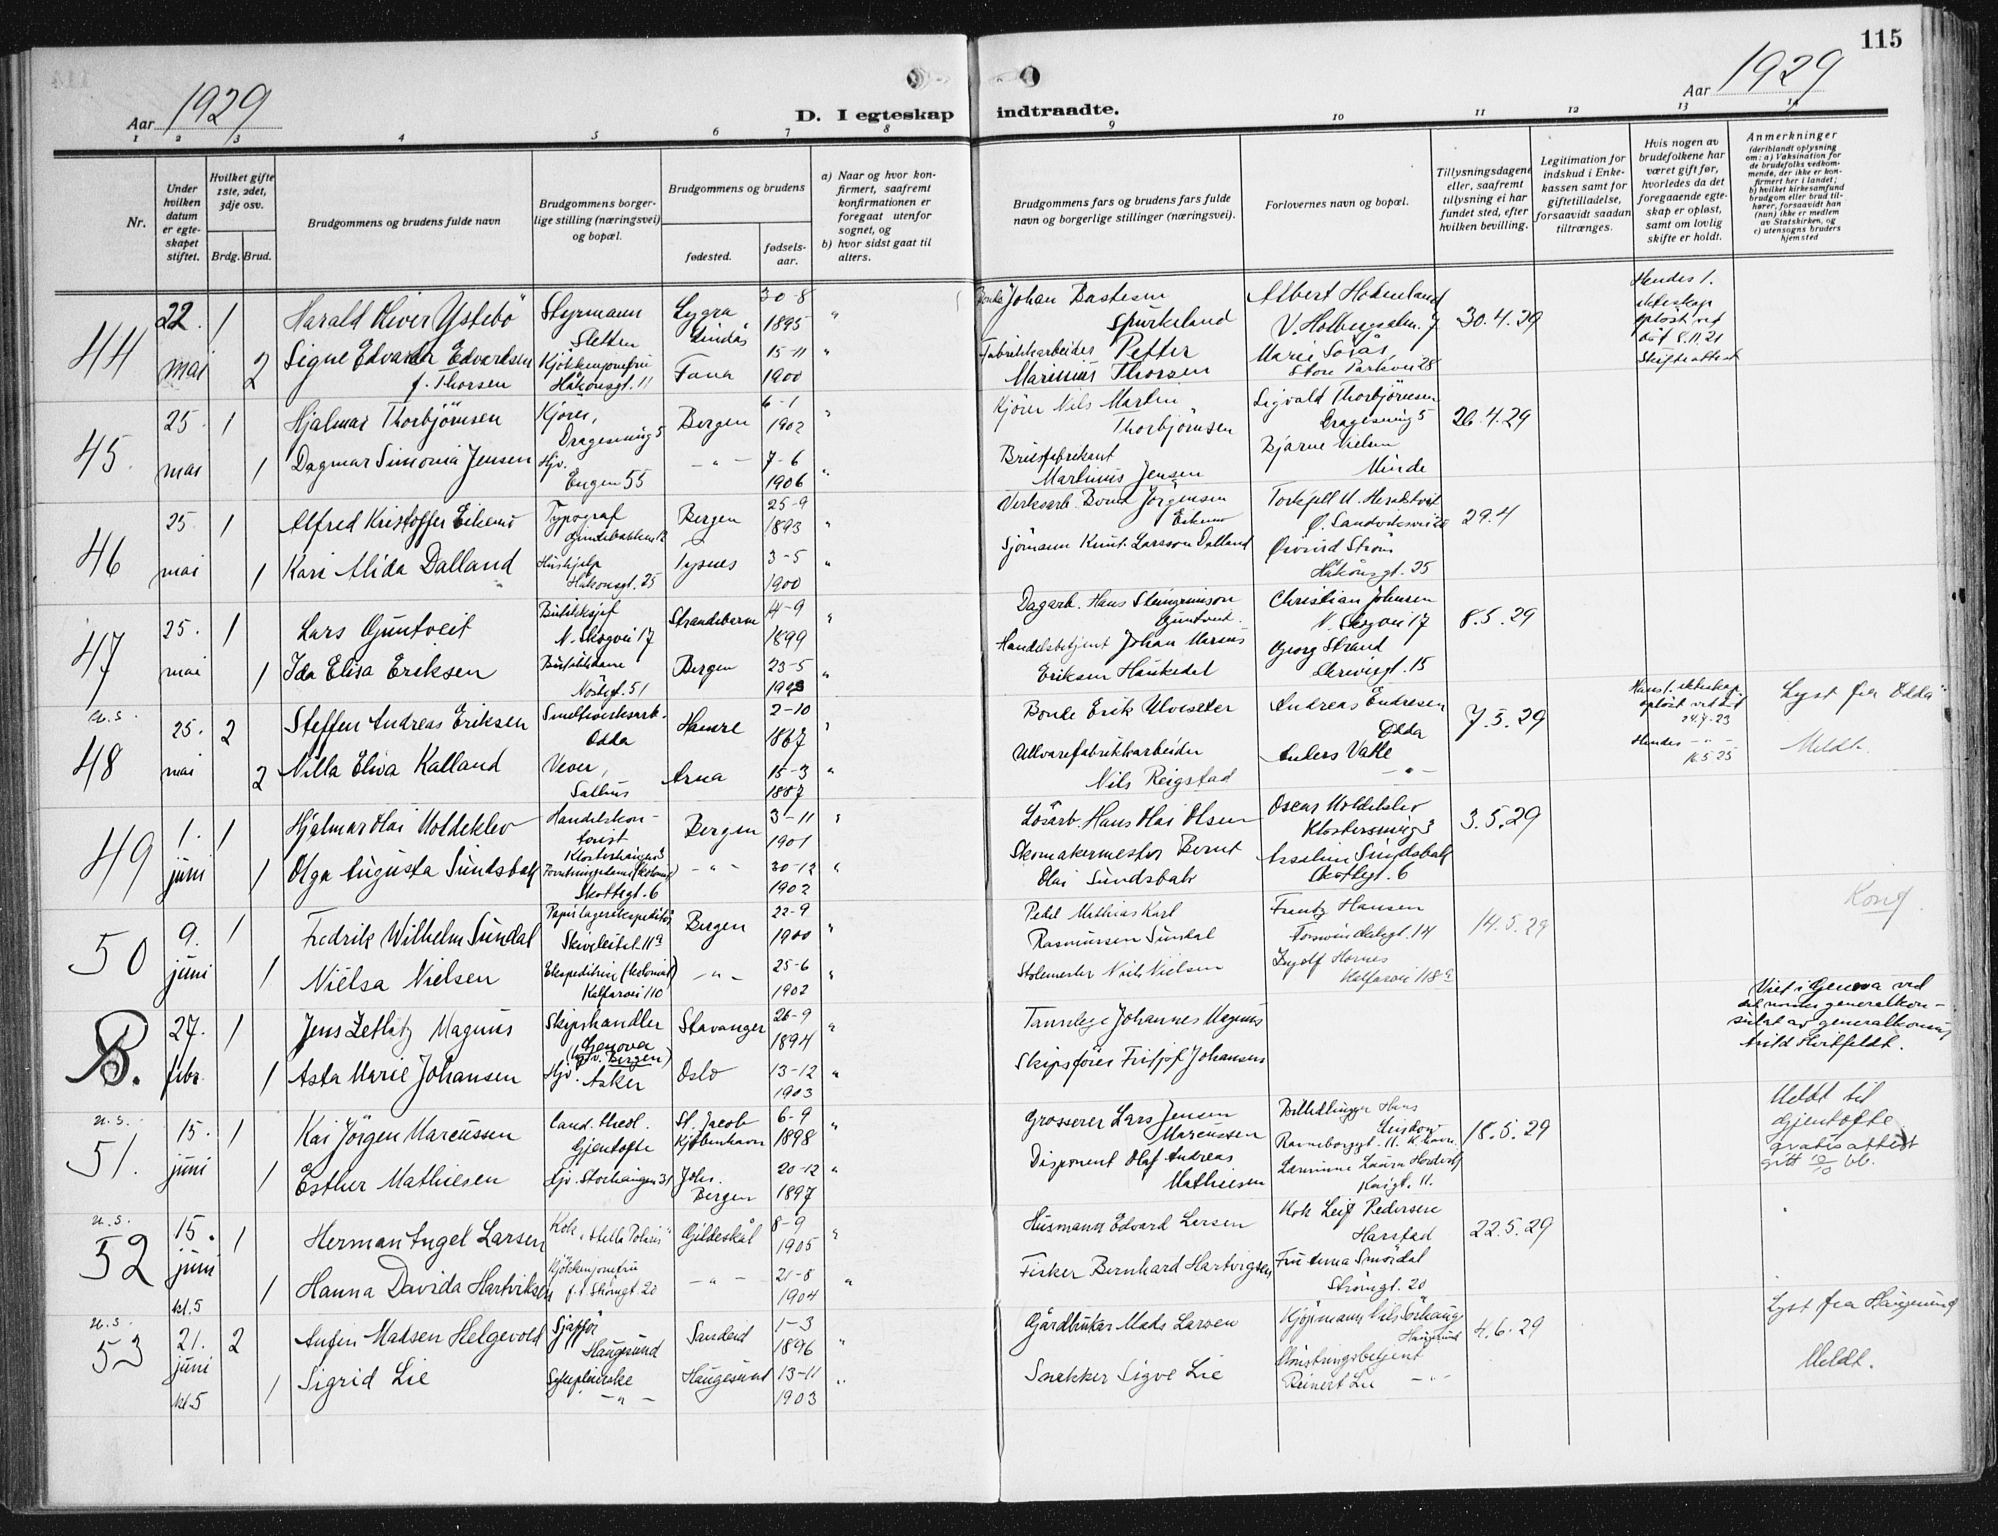 115
Aar 1929
D. I egteskap indtraadte.
Aar 1929
1 2 3 4 5 6 7 8 9 10 11 12 13 14
Nr.
Under hvilken datum er egte-skapet stiftet.
Hvilket gifte 1ste, 2det, 3dje osv.
Brdg. Brud.
Brudgommens og brudens fulde navn
Brudgommens borger-lige stilling (næringsvei) og bopæl.
Brudgommens og brudens
fødested.
fødsels-aar.
a) Naar og hvor kon-firmert, saafremt konfirmationen er foregaat utenfor sognet, og
b) hvor sidst gaat til alters.
Brudgommens fars og brudens fars fulde navn og borgerlige stillinger (næringsvei).
Forlovernes navn og bopæl.
Tillysningsdagene eller, saafremt tillysning ei har fundet sted, efter hvilken bevilling.
Legitimation for indskud i Enke-kassen samt for giftetilladelse, forsaavidt saadan tiltrænges.
Hvis nogen av brudefolkene har været gift før, hvorledes da det foregaaende egte-skap er opløst, samt om lovlig skifte er holdt.
Anmerkninger
(deriblandt oplysning om: a) Vaksination for de brudefolks vedkom-mende, der ikke er kon-firmert her i landet; b) hvilket kirkesamfund brudgom eller brud til-hører, forsaavidt han (hun) ikke er medlem av Statskirken, og c) utensogns bruders hjemsted
44 22. mai 1 Harald Ystebö Styrmann Sletten Lygra Lindås 30-8 1895 "
Johan Bastesen Spurkeland Albert V. Holbergsalm. 7 30.4.29
Hendes 1. ekteskap opløst ved död 8.11.21 Skifteattest
2 Signe Edvarda Edvardsen f. Thorsen Kjökkenjomfru Håkonsgt. 11 Fana 15-11 1900 "
Fabrikkarbeider Petter Marinius Thorsen Marie Store Parkvei 28
45. 25. mai 1 Hjalmar Thorbjörnsen Kjörer, Dragesmug 5 Bergen 6-1 1902 "
Kjörer Nils Martin Thorbjörnsen Sigvald Thorbjörnsen Dragesmug 5 26.4.29
1 Dagmar Simonia Jensen Hjv. Engen 55 -"- 7-6 1906 "
Martinus Jensen Bjarne Nielsen Minde
46 25. mai 1 Alfred Kristoffer Eikemo Typograf Bergen 25-9 1893 "
Verksarb. Bernt Jörgensen Eikemo Torkjell M. 29.4
1 Kari Alida Dalland Hushjelp Håkonsgt. 25 Tysnes 3-5 1900 "
Sjömann Knut Larsson Dalland Öivind Ström Håkonsgt. 25
47 25. mai 1 Lars Guntveit Butikksjef N. Skogvei 17 Strandebarm 4-9 1899 "
Dagarb. Hans Steingrimson Guntveit Christian Johnsen N. Skogvei 17 8.5.29
1 Ida Elisa Eriksen Butikkdame Nöstegt. 51 Bergen 23-5 "
Handelsbetjent Johan Marius Eriksen Haukedal Georg Strand 15
u.s. 48 25. mai 2 Steffen Andreas Eriksen Smelteverksarb. Odda Hamre 2-10 1867 "
Bonde Erik Ulveseter Andreas Endresen Odda 7.5.29
Hans 1. ekteskap opløst ved död 24.7.23 Lyst fra Odda
2 Nilla Elisa Kalland Vever, Salhus Arna 15-3 1887 "
Ullvarefabrikkarbeider Nils Reigstad Anders Vatle -"-
Hendes -"- 16.5.25 Meldt.
49 1. juni 1 Hjalmar Olai Moldeklev Handelskon-torist Klosterhaugen 3 Bergen 3-11 1901 "
Lösarb. Hans Olai Olsen Oscar Moldeklev Klostersmug 3 3.5.29
1 Olga Augusta Sundsbak Forretningsdame (kolonial) Skottegt. 6 -"- 30-12 1902 "
Skomakermester Bernt Olai Sundsbak Sundsbak Skottegt. 6
50 9. juni 1 Fredrik Wilhelm Sundal Papirlagerekspeditör Skivebakk. 11a Bergen 22-9 1900 "
Pedel Mathias Karl Rasmussen Sundal Frantz Hansen 14 14.5.29 Kong.
1 Nielsa Nielsen Ekspeditrise (kolonial) Kalfarvei 110 -"- 25-6 1902 "
Stolemester Nils Nielsen Kalfarvei 118a
B. 27. febr. 1 Jens Zetlitz Magnus Skipshandler Genova (hjv. Bergen) Stavanger 26-9 1894 "
Tannlege Johannes Magnus
Viet i Genova ved det norske generalkon-sulat av generalkonsul Arild Huitfeldt.
1 Asta Marie Johansen Hjv. Asker Oslo 13-12 1903 "
Skipsförer Fritjof Johansen
u.s. 51. 15. juni 1 Kai Jörgen Marcussen Cand. theol. Gjentofte St. Jacob Kjöbenhavn 6-9 1898 "
Grosserer Lars Jensen Marcussen Billedhugger Hans Ravneborggt. 11 K.havn 18.5.29
Meldt til Gjentofte. gratisattest gitt
1 Esther Mathiesen Hjv. Storhaugen 31 Johs. Bergen 20-12 1897 "
Disponent Olaf Andreas Mathiesen Lærerinne Laura Kaigt. 11.
u.s. 52 15. juni kl. 5 1 Herman Angel Larsen Kok "Stella Polaris" Gildeskål 8-9 1905 "
Husmann Edvard Larsen Kok Leif Pedersen Harstad 22.5.29
1 Hanna Davida Hartviksen Kjökkenjomfru f.t. Strömgt 20 -"- 21-8 1904 "
Fisker Bernhard Hartvigsen Fru Anna Smördal Strömgt. 20
u.s. 53 21. juni kl. 5 2 Anfin Madsen Helgevold Sjafför Haugesund Sandeid 1-3 1896 "
Gårdbruker Mads Larsen Kjöpmann Nils Haugesund 4.6.29 Lyst fra Haugesund
1 Sigrid Lie Sykepleierske -"- Haugesund 13-11 1903 "
Snekker Sigve Lie Mönstringsbetjent Reinert Lie -"- Meldt.